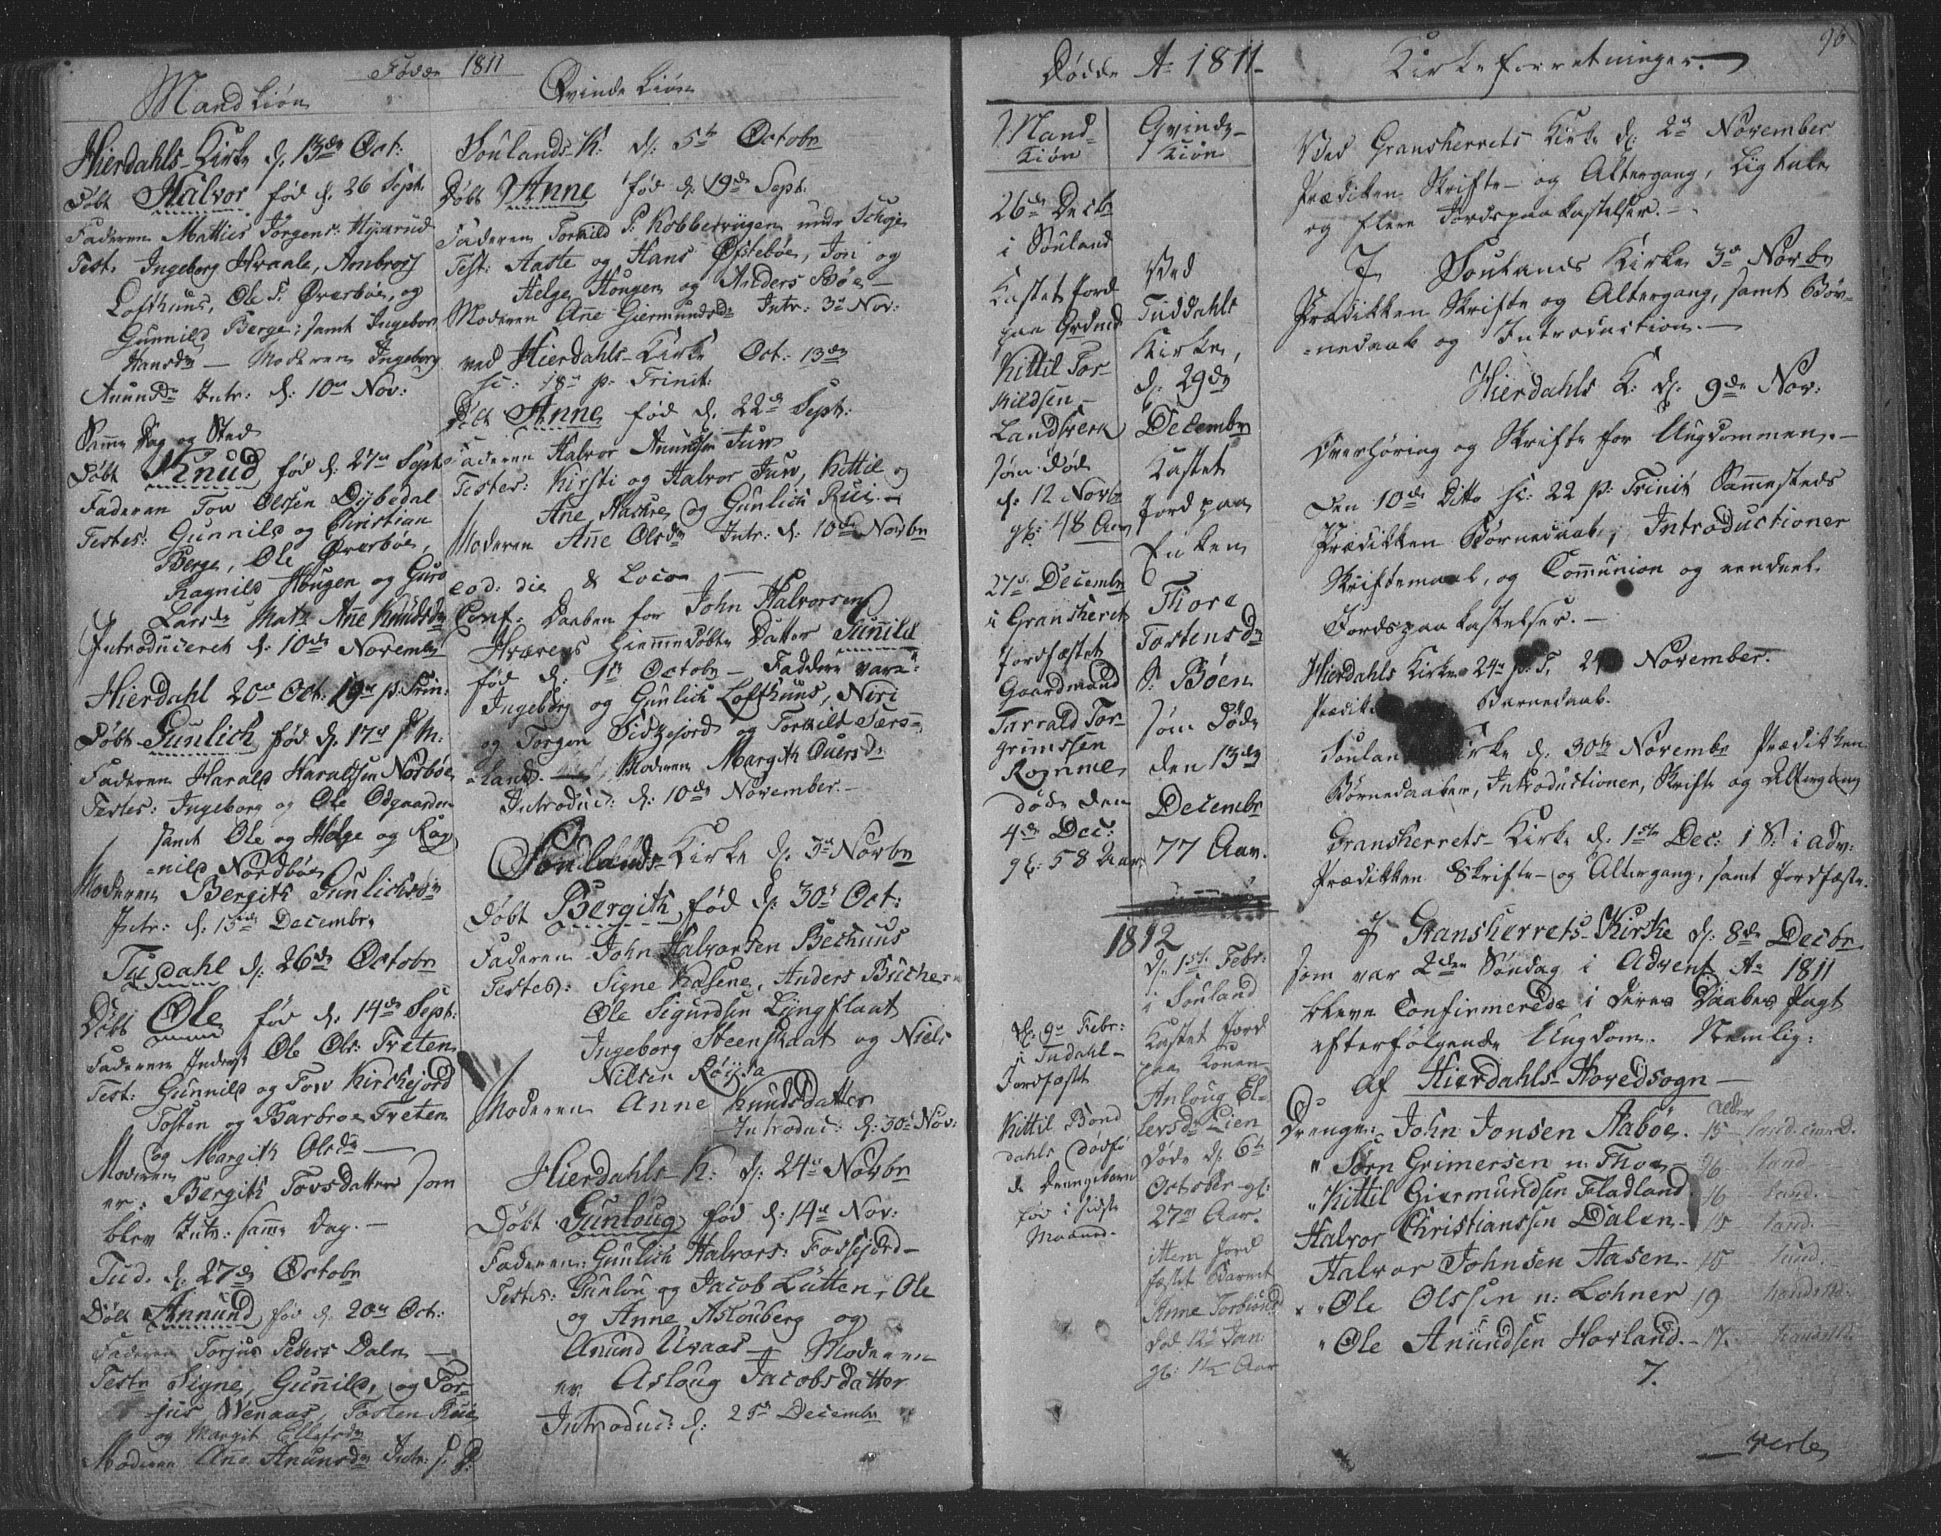 Fødde 1811
Mandkiøn
Hierdahls Kirke d. 13de Oct:
Døbt Halvor fød d. 26 Sept.
Faderen Mathies Jørgens:
Test. Ingeborg Hvaale, Ambros
Lofthuus, Ole P. Øverbøe, og
Gunnild Berge; samt Ingebor
Hansdr — Moderen Ingeborg
Anundsdr Intr: d: 10de Nov:
Samme Dag og Sted
Døbt Knud fød d. 27de Sept
Faderen Tov Olsen Dybedal
Testes: Gunnild og Christian
Berge, Ole Øverbøe,
Ragnild Hougen og Guro
Larsdr Mat: Anne Knudsdr
Introduceret d. 10de November
Hierdahl 20de Oct: 19de p. Trin:
Døbt Gunlich fød d. 17de
Faderen Harald Haraldsen Norbøe
Testes: Ingeborg og Ole Odgaarden
samt Ole og Helge og Rag
nild Nordbøe
Moderen Bergith Gunlichsdr
Intr: d. 15de Decembr.
Tudahl d: 26de Octobr
Døbt Ole fød d. 14de Sept:
Faderen Ole Ols: Treten
Test: Gunnild og Tov Kirkejord
Tosten og Barbroe Treten
og Margith Olsdr —
Moderen
er: Bergith Tovsdatter som
blev Intr: samme Dag. —
Tud. d. 27de Octobr
Døbt Annund fød d. 20de Oct:
Faderen Torjus Peders Dalen —
Teste Signe, Gunnild, og Tor-
jus Wenaas, Tosten Rui
og Margit Ellefsdr
Moderen Ane Anunsdr Intr: s. D.
Qvindekiøn
Soulands K: d: 5te Octobr
Døbt Anne fød d. 19de Sept.
Faderen Torkild P. Kobbervigen under Schoje
Test: Aaste og Hans Øfstebøe, Jon og
Helge Hougen og Anders Bøe —
Moderen Ane Giermundsdr Intr: 3de Nov:
ved Hierdahls Kirke Oct: 13de
sc: 18de p. Trinit:
Døbt Anne fød d. 22de Sept:
Faderen Halvor Anundsen Juv
Testes: Kirsti og Halvor Juv, Kittil og
Ane og Gunlich Rui. —
Moderen Anne Olsdr Intr: d: 10de Novbr
eod: die & Loco —
Conf: Daaben for John Halvorsen
hiemmedøbte Datter Gunnild
fød d: 1ste Octobr — Faddere vare:
Ingeborg og Gunlich Lofthuus, Niri
og Torgon og Torkild Søro-
land. — Moderen Margith
Introduc: d: 10de November. —
Soulands Kirke d. 3de Novbr
Døbt Bergith fød d. 30te Oct:
Faderen John Halvorsen Bechuus
Testes: Signe Haasene, Anders
Ole Sigurdsen Lyngflaat
Ingeborg Steenflaat og Niels
Nilsen Røysa
Moderen Anne Knudsdatter
Introduc: d: 30te Nov:
Hierdahls K: d: 24de Novbr
Døbt Gunloug fød d: 14de Nov:
Faderen: Gunlich Halvors: Fossejord —
Testes: Gunlou og Jacob Lutten, Ole
og Anne Aslonberg og
Anund Uvaas — Moderen
er Asloug Jacobsdatter
Introduc: d: 25de Decembr
Dødde Ao 1811
Mand-
kiøn
26de Decbr
i Souland
Kastet Jord
paa Gdmd
Kittil Tor
kildsen —
Landsverk
som døde
d. 12 Novb
gl: 48 Aar
27de Decembr
i Gransheret
jordfæstet
Gaardmand
Tarrald Tor-
grimssen
Romme
døde den
4de Dec:
gl: 58 Aar
d. 9de Febr:
i Tudahl —
Jordfæstt
Kittil Bond
dahls dødfø
de Drengebarn
fød i sidste
Maaned.
Qvinde-
kiøn
Ved
Tuddahls
Kirke,
d: 29de
Decembr
Kastet
Jord paa
Enken
Thore
Tostensdr
P. Bøen
som døde
den 13de
Decembr
77 Aar.
1812
d. 1ste Febr:
i Souland
Kastet Jord
paa Konen
Anloug El-
levsdr Lien
døde d. 6te
October gl:
27 Aar.
item Jord
fæstet Barnet
Anne Torbiønd
død 12te Jan:
gl: 1½ Aar
Kirkeforretninger.
96
Ved Gransherrets Kirke d: 2de November
Prædiken Skrifte- og Altergang, Ligtale
og flere Jordspaakastelser. —
I Soulands Kirke 3de Novbr
Prædikken Skrifte og Altergang, samt Bør-
nedaab og Introduction. —
Hierdahls K: d: 9de Nov:
Overhøring og Skrifte for Ungdommen. —
Den 10de Ditto sc: 22 p. Trinit Sammesteds
Prædikken Børnedaab, Introductioner
Skriftemaal, og Communion og eendeel
Jordspaakastelser. —
Hierdahls Kirke 24de p. T. 24 November.
Prædik Barnedaab.
Soulan Kirke d. 30te Novembr Prædikken
Børnedaaben, Introductioner, Skrifte og Altergang
Gransherrets Kirke d. 1ste Dec: 1 S: i adv:
Prædikken Skrifte- og Altergang, samt Jordfæste.
I Gransherrets Kirke d: 8de Decbr
som var 2den Søndag i Advent Ao 1811
bleve Confirmerede i deres Daabes Pagt
efterfølgende Ungdom. Nemlig:
Af Hierdahls Hovedsogn —
Alder
Drenge: John Jonsen Aabøe. 15
" Sørn Grimersen n: Thoe — 16
" Kittil Giermundsen Fladland 16
Halvor Christianssen Dalen — 15
Halvor Johnsen Aasen — 15
" Ole Olssen n: Lohner 19
" Ole Anundsen Hovland. — 17.
7.
— verte